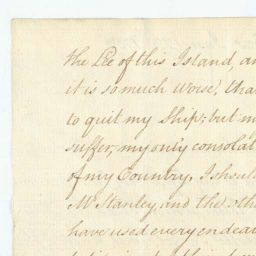 the Lee of this Island, an
it is so much worse, tha
to quit my Ship; but m
suffer, my only consolat
of my Country. I shoul
Mr Stanley, and the oth
have used every endeav